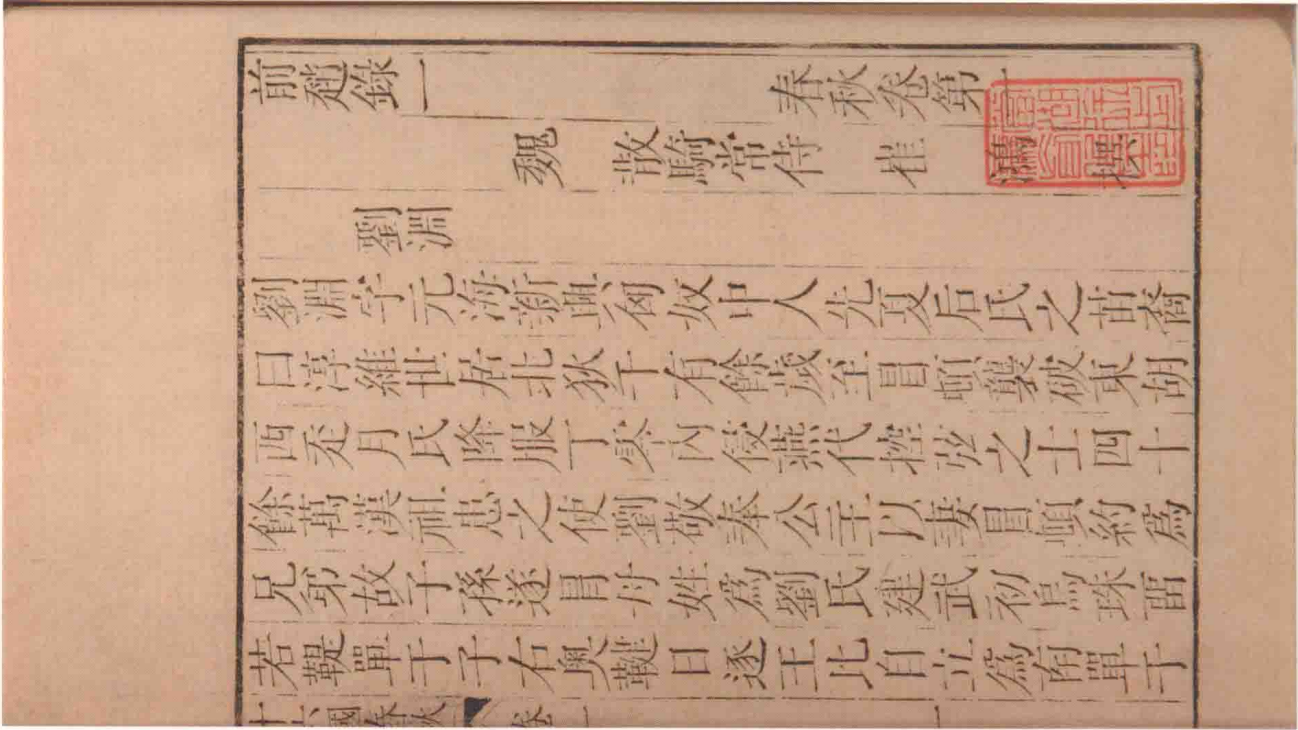 前趙錄一 春秋卷第一
魏 散騎常侍 崔 鴻 撰
劉淵
劉淵字元海新興匈奴中人先夏后氏之苗裔
曰淳維世居北狄千有餘歲至冒頓襲破東胡
西走月氏降服丁零內侵燕代控弦之士四十
餘萬漢祖患之使劉敬奉公主以妻冒頓約爲
兄弟故子孫遂冒母姓爲劉氏建武初烏珠留
若鞮單于子右奧鞬日逐王比自立爲南單于
十六國春秋 卷一 一